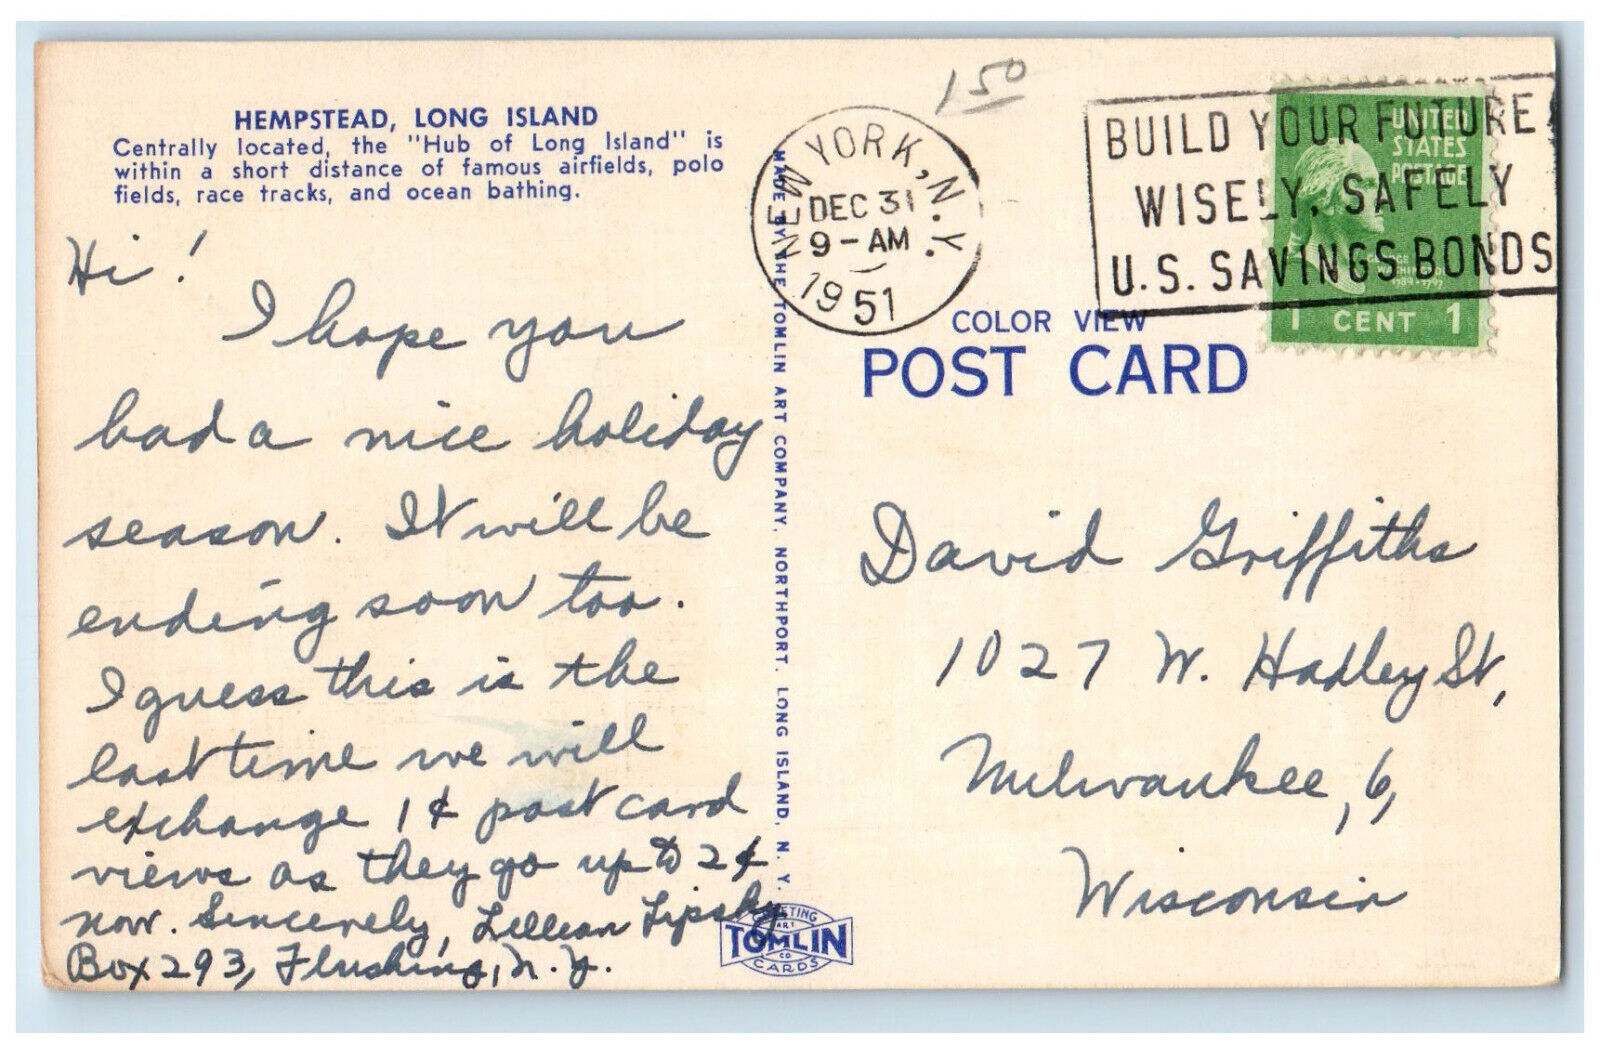 HEMPSTEAD, LONG ISLAND
Centrally located, the "Hub of Long Island" is
within a short distance of famous airfields, polo
fields, race tracks, and ocean bathing.
Hi!
I hope you
had a nice holiday
season. It will be
ending soon too.
I guess this is the
last time we will
exchange 1¢ post card
views as they go up to 2¢
now. Sincerely, Lillian Lipsky
Box 293, Flushing, N.Y.
MADE BY THE TOMLIN ART COMPANY, NORTHPORT, LONG ISLAND, N. Y.
GREETING
ART
TOMLIN
CO
CARDS
150
NEW YORK, N.Y.
DEC 31
9-AM
1951
BUILD YOUR FUTURE
WISELY, SAFELY
U.S. SAVINGS BONDS
UNITED
STATES
POSTAGE
GEORGE
WASHINGTON
1789-1797
1 CENT 1
COLOR VIEW
POST CARD
David Griffiths
1027 W. Hadley St,
Milwaukee, 6,
Wisconsin